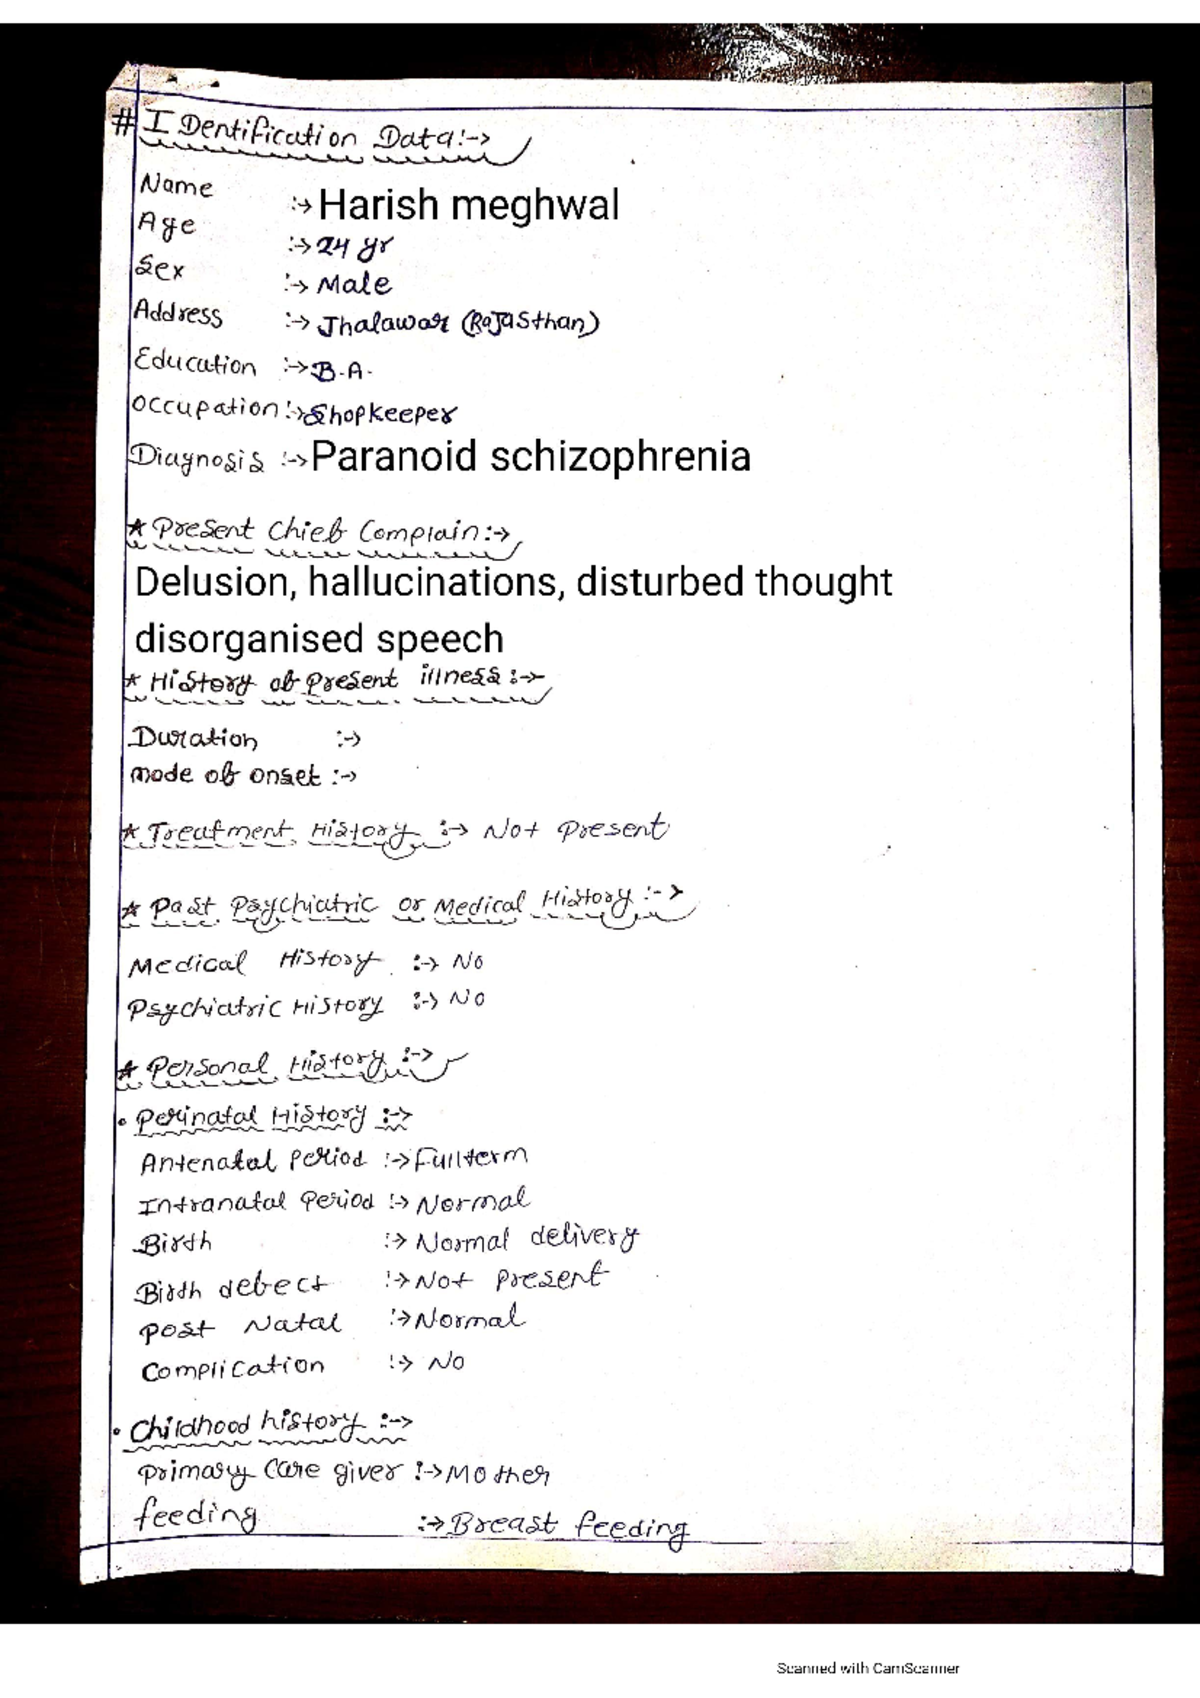 # IDentification Data:->
Name :-> Harish meghwal
Age :-> 24 yr
Sex :-> Male
Address :-> Jhalawar (RaJaSthan)
Education :-> B.A.
Occupation :-> Shopkeeper
Diagnosis :-> Paranoid schizophrenia
* Present Chief Complain :->
Delusion, hallucinations, disturbed thought
disorganised speech
* History of Present illness :->
Duration :->
mode of onset :->
* Treatment History :-> Not Present
* Past Psychiatric or Medical History :->
Medical History :-> No
Psychiatric History :-> No
* Personal History :->
• Perinatal History :->
Antenatal Period :-> Fullterm
Intranatal Period :-> Normal
Birth :-> Normal delivery
Birth defect :-> Not Present
Post Natal :-> Normal
Complication :-> No
• Childhood history :->
Primary Care giver :-> Mother
feeding :-> Breast feeding
Scanned with CamScanner